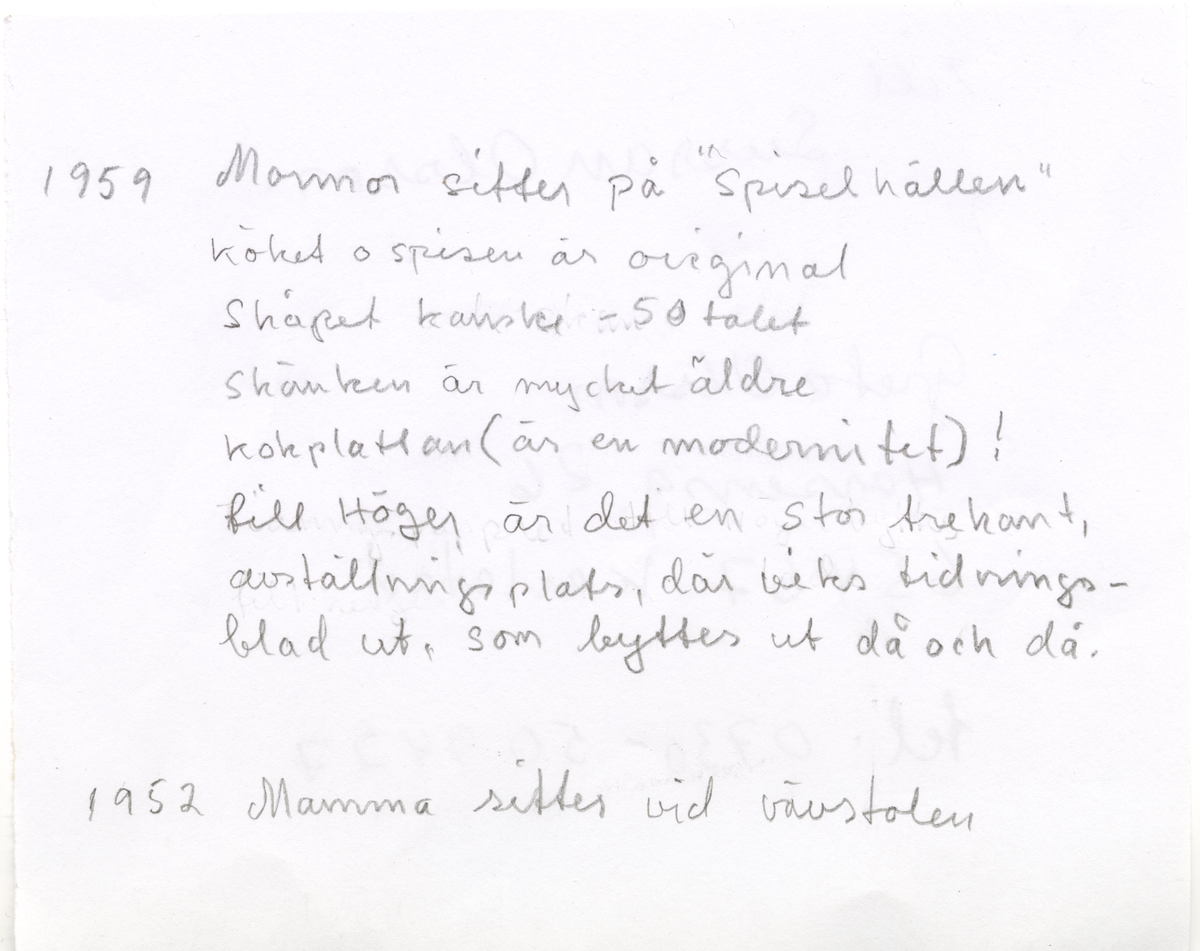 1959 Mormor sitter på "Spiselhällen"
köket o spisen är original
Skåpet kanske -50 talet
Skänken är mycket äldre
kokplattan (är en modernitet)!
till Höger är det en stor trekant,
avställningsplats, där viks tidnings-
blad ut, som byttes ut då och då.
1952 Mamma sitter vid vävstolen